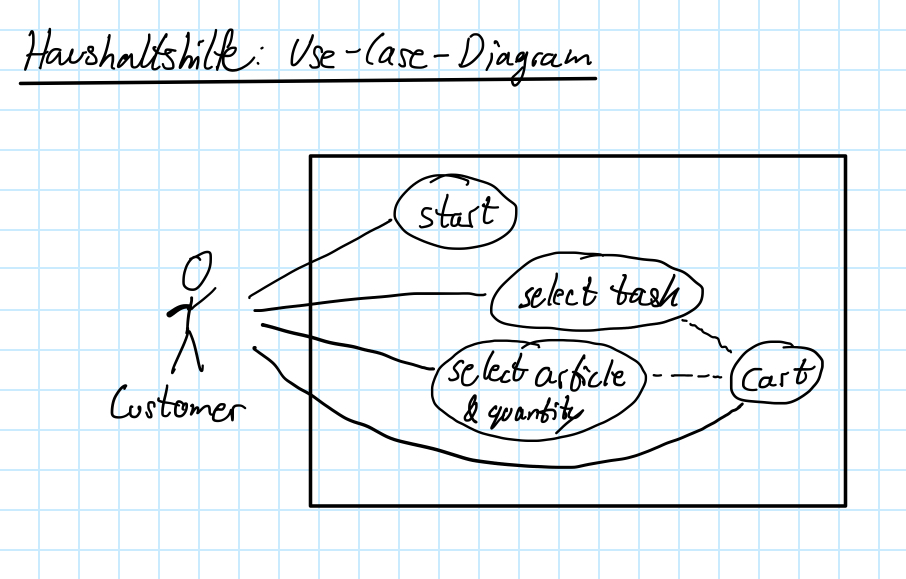 Haushaltshilfe: Use-Case-Diagram
start
select task
select article
& quantity
Cart
Customer